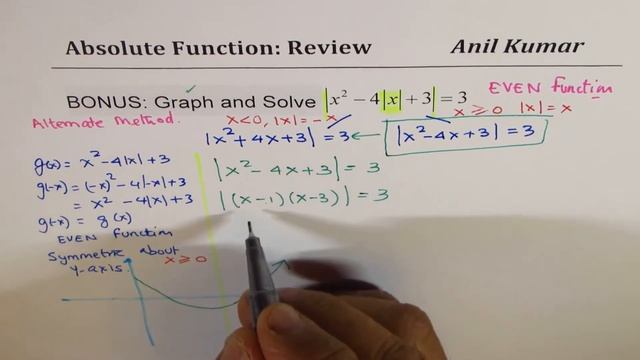 Absolute Function: Review Anil Kumar
BONUS: Graph and Solve |x² − 4|x| + 3| = 3
EVEN Function
Alternate Method.
x<0, |x| = −x
x ≥ 0 |x| = x
|x²+4x+3| = 3 ← |x²−4x+3| = 3
g(x) = x²−4|x|+3
g(-x) = (-x)²−4|-x|+3
= x² − 4|x|+3
g(-x) = g(x)
EVEN Function
Symmetric about
y-axis.
x ≥ 0
|x² − 4x+3| = 3
|(x−1)(x−3)| = 3